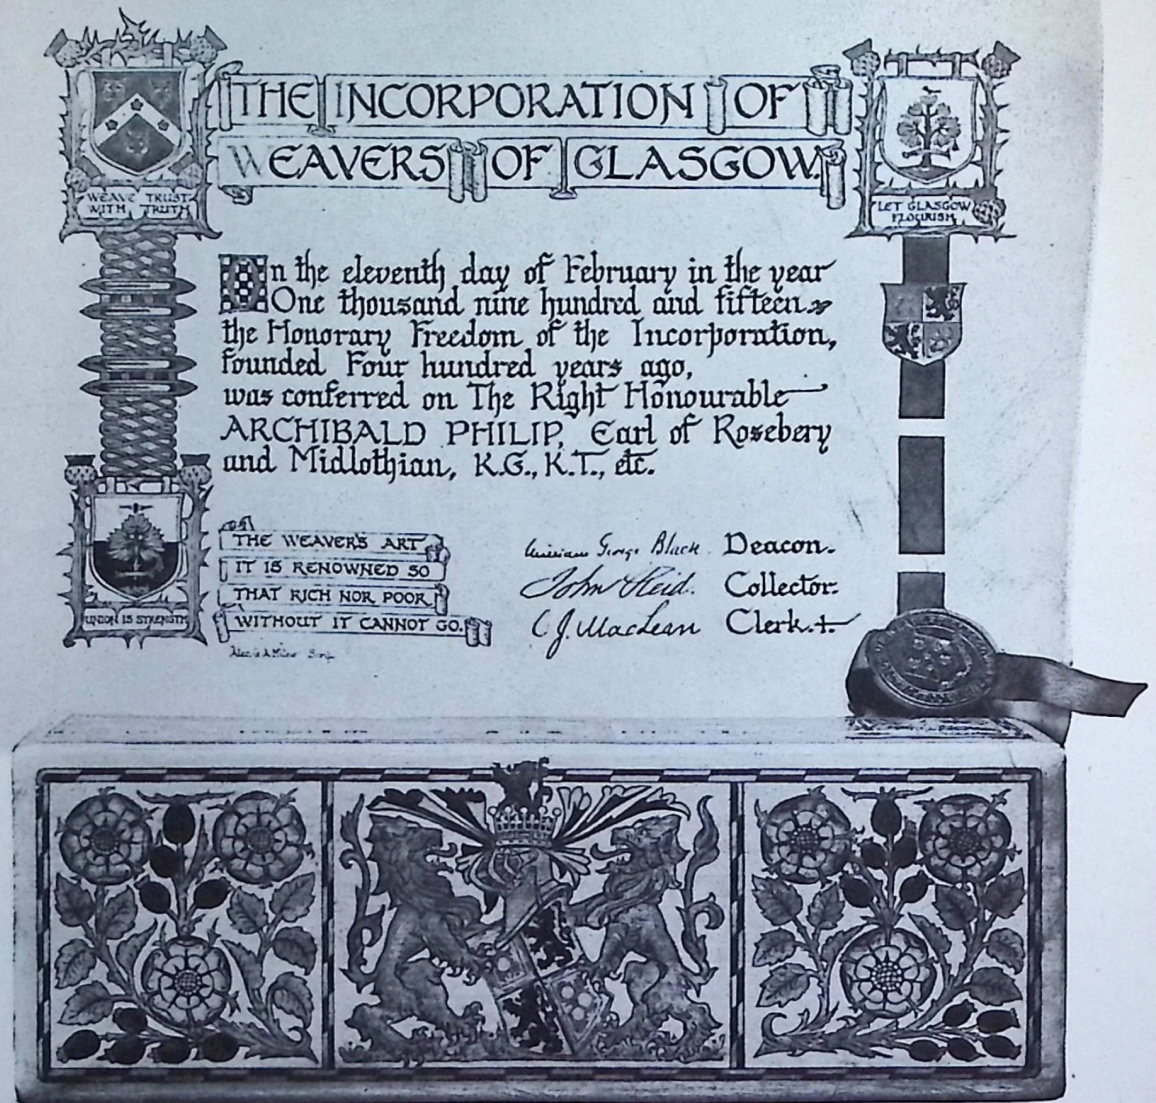 THE INCORPORATION OF
WEAVERS OF GLASGOW.
WEAVE TRUST
WITH TRUTH
LET GLASGOW
FLOURISH
On the eleventh day of February in the year
One thousand nine hundred and fifteen
the Honorary Freedom of the Incorporation,
founded Four hundred years ago,
was conferred on The Right Honourable
ARCHIBALD PHILIP, Earl of Rosebery
and Midlothian, K.G., K.T., etc.
UNION IS STRENGTH
THE WEAVER'S ART
IT IS RENOWNED SO
THAT RICH NOR POOR
WITHOUT IT CANNOT GO.
William George Black Deacon.
John Reid. Collector.
C. J. MacLean Clerk.